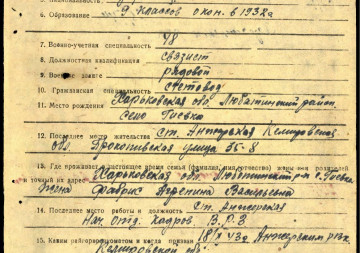 6. Образование 9 классов окон. в 1932 г
7. Военно-учетная специальность 48
8. Должностная квалификация связист
9. Военное звание рядовой
10. Гражданская специальность счетовод
11. Место рождения Харьковская обл Люботинский район
село Гиевка
12. Последнее место жительства ст. Анжерская Кемеровской
обл. 55-8
13. Где проживает в настоящее время семья (фамилия, имя, отчество) жены или родителей
и точный их адрес Харьковская обл Люботинский р-н с. Гиевка
жена Васильевна
14. Последнее место работы и должность ст. Анжерская
нач. отд. кадров В.Р.З
15. Каким райгорвоенкоматом и когда призван 43 Анжерским рвк
Кемеровской обл